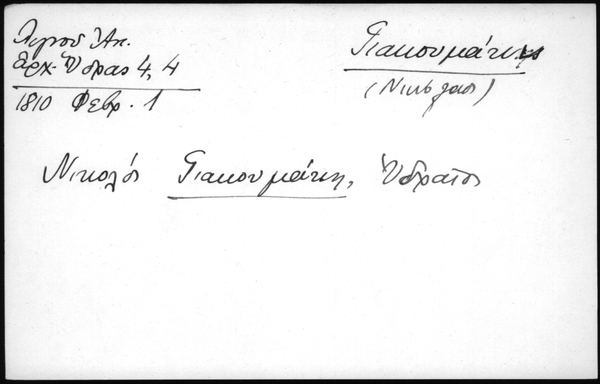 Λιγνού Ἀπ.
Ἀρχ. Ὕδρας 4, 4
1810 Φεβρ. 1
Γιακουμάκης
(Νικόλαος)
Νικολός Γιακουμάκη, Ὑδραῖος